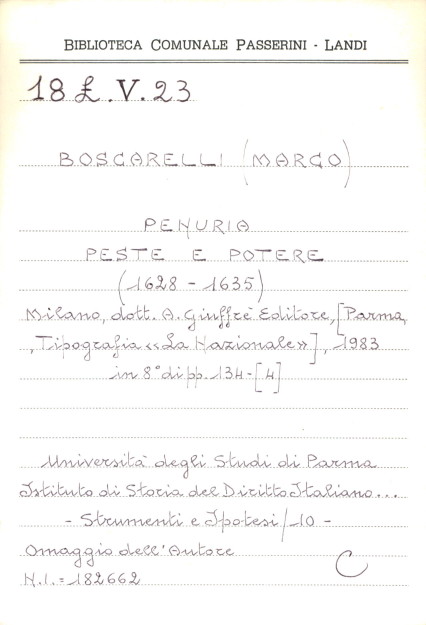 BIBLIOTECA COMUNALE PASSERINI - LANDI
18 £.V.23
BOSCARELLI (MARCO)
PENURIA
PESTE E POTERE
(1628 - 1635)
Milano, dott. A. Giuffrè Editore, [Parma,
, Tipografia «La Nazionale»], 1983
in 8° di pp. 134-[4]
Università degli Studi di Parma
Istituto di Storia del Diritto Italiano...
- Strumenti e Ipotesi / 10 -
Omaggio dell'Autore
N.I. = 182662
C